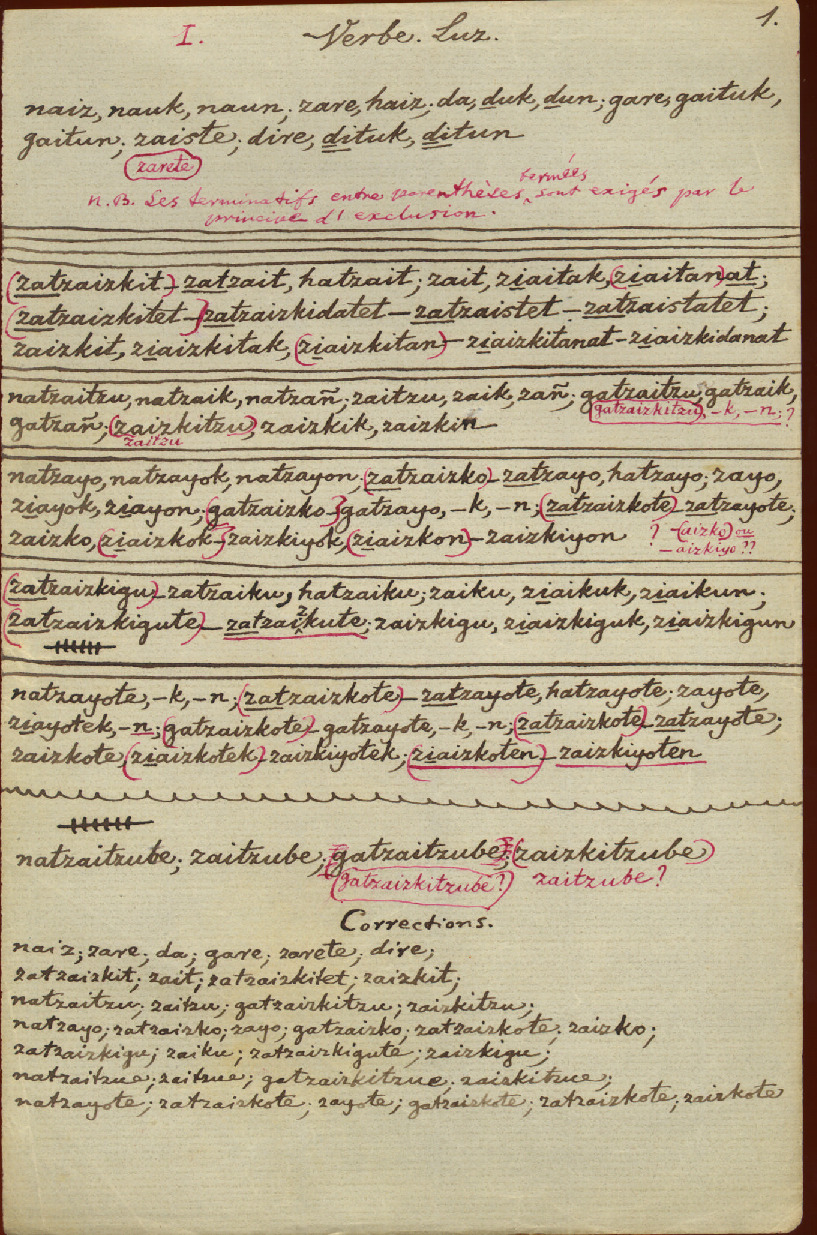 1.
I. Verbe. Luz.
naiz, nauk, naun; zare, haiz; da, duk, dun; gare, gaituk,
gaitun; zaiste; dire, dituk, ditun
zarete
n. B. Les terminatifs entre parenthèses, sont exigés par le
termées
principe d'exclusion.
(zatzaizkit)-zatzait, hatzait; zait, ziaitak, (ziaitan)at;
(zatzaizkitet-)zatzaizkidatet-zatzaistet-zatzaistatet;
zaizkit, ziaizkitak, (ziaizkitan)-ziaizkitanat-ziaizkidanat
natzaitzu, natzaik, natzañ; zaitzu, zaik, zañ; gatzaitzu, gatzaik,
gatzaizkitzu, -k, -n; ?
gatzañ, (zaizkitzu) zaizkik, zaizkin
zaitzu
natzayo, natzayok, natzayon; (zatzaizko)-zatzayo, hatzayo; zayo,
ziayok, ziayon; (gatzaizko-)gatzayo, -k, -n; (zatzaizkote)-zatzayote;
zaizko, (ziaizkok-)zaizkiyok, (ziaizkon)-zaizkiyon ? -(aizko) ou
-aizkiyo??
(zatzaizkigu)-zatzaiku, hatzaiku; zaiku, ziaikuk, ziaikun;
(zatzaizkigute)-zatzaizkute; zaizkigu, ziaizkiguk, ziaizkigun
natzayote, -k, -n; (zatzaizkote)-zatzayote, hatzayote; zayote,
ziayotek, -n; (gatzaizkote)-gatzayote, -k, -n; (zatzaizkote)-zatzayote;
zaizkote, (ziaizkotek)-zaizkiyotek; (ziaizkoten)-zaizkiyoten
natzaitzube; zaitzube; gatzaitzube; (zaizkitzube)
(gatzaizkitzube?) zaitzube?
Corrections.
naiz; zare; da; gare; zarete; dire;
zatzaizkit; zait; zatzaizkitet; zaizkit;
natzaitzu; zaitzu; gatzaizkitzu; zaizkitzu;
natzayo; zatzaizko; zayo; gatzaizko; zatzaizkote; zaizko;
zatzaizkigu; zaiku; zatzaizkigute; zaizkigu;
natzaitzue; zaitzue; gatzaizkitzue; zaizkitzue;
natzayote; zatzaizkote; zayote; gatzaizkote; zatzaizkote; zaizkote